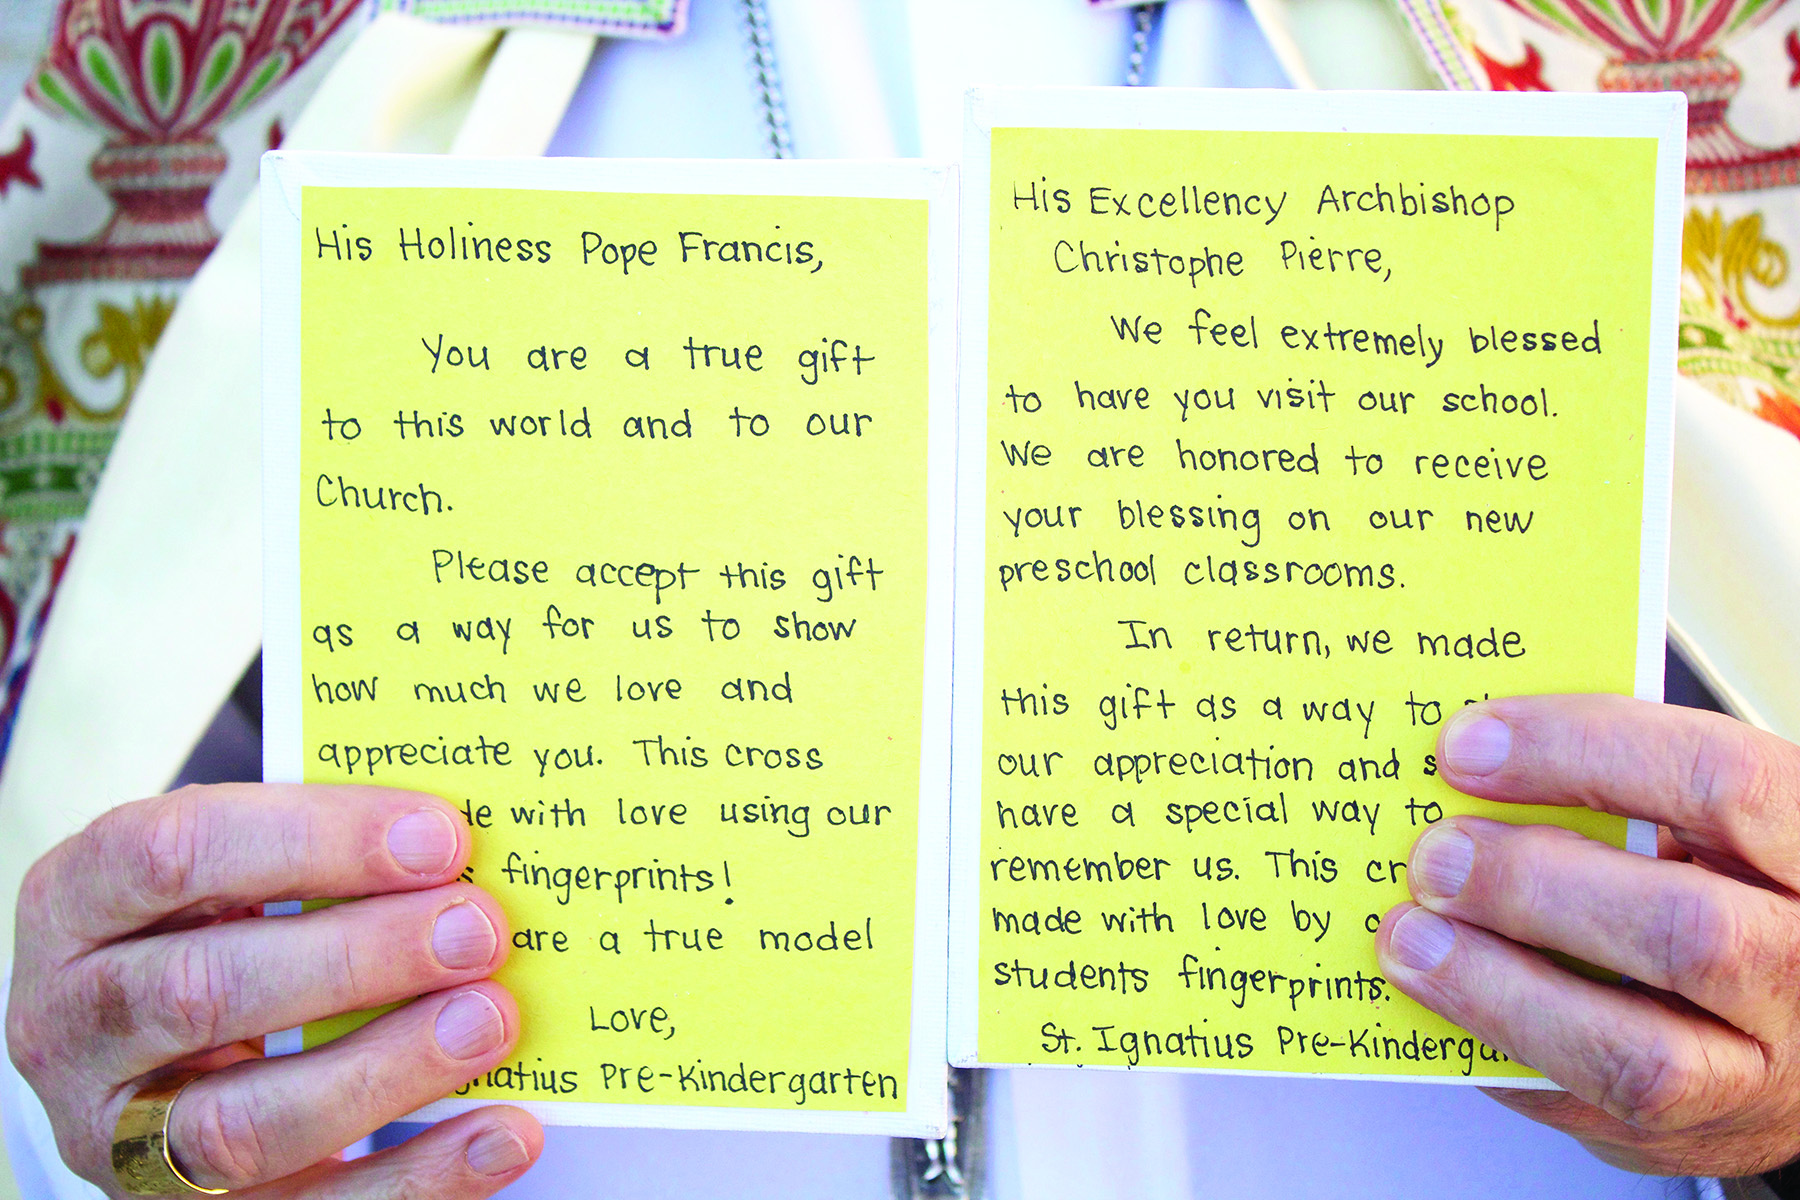 His Holiness Pope Francis,
You are a true gift
to this world and to our
Church.
Please accept this gift
as a way for us to show
how much we love and
appreciate you. This cross
with love using our
fingerprints!
are a true model
Love,
Ignatius Pre-Kindergarten
His Excellency Archbishop
Christophe Pierre,
We feel extremely blessed
to have you visit our school.
We are honored to receive
your blessing on our new
preschool classrooms.
In return, we made
this gift as a way to
our appreciation and
have a special way to
remember us. This
made with love by
students fingerprints.
St. Ignatius Pre-Kinderga